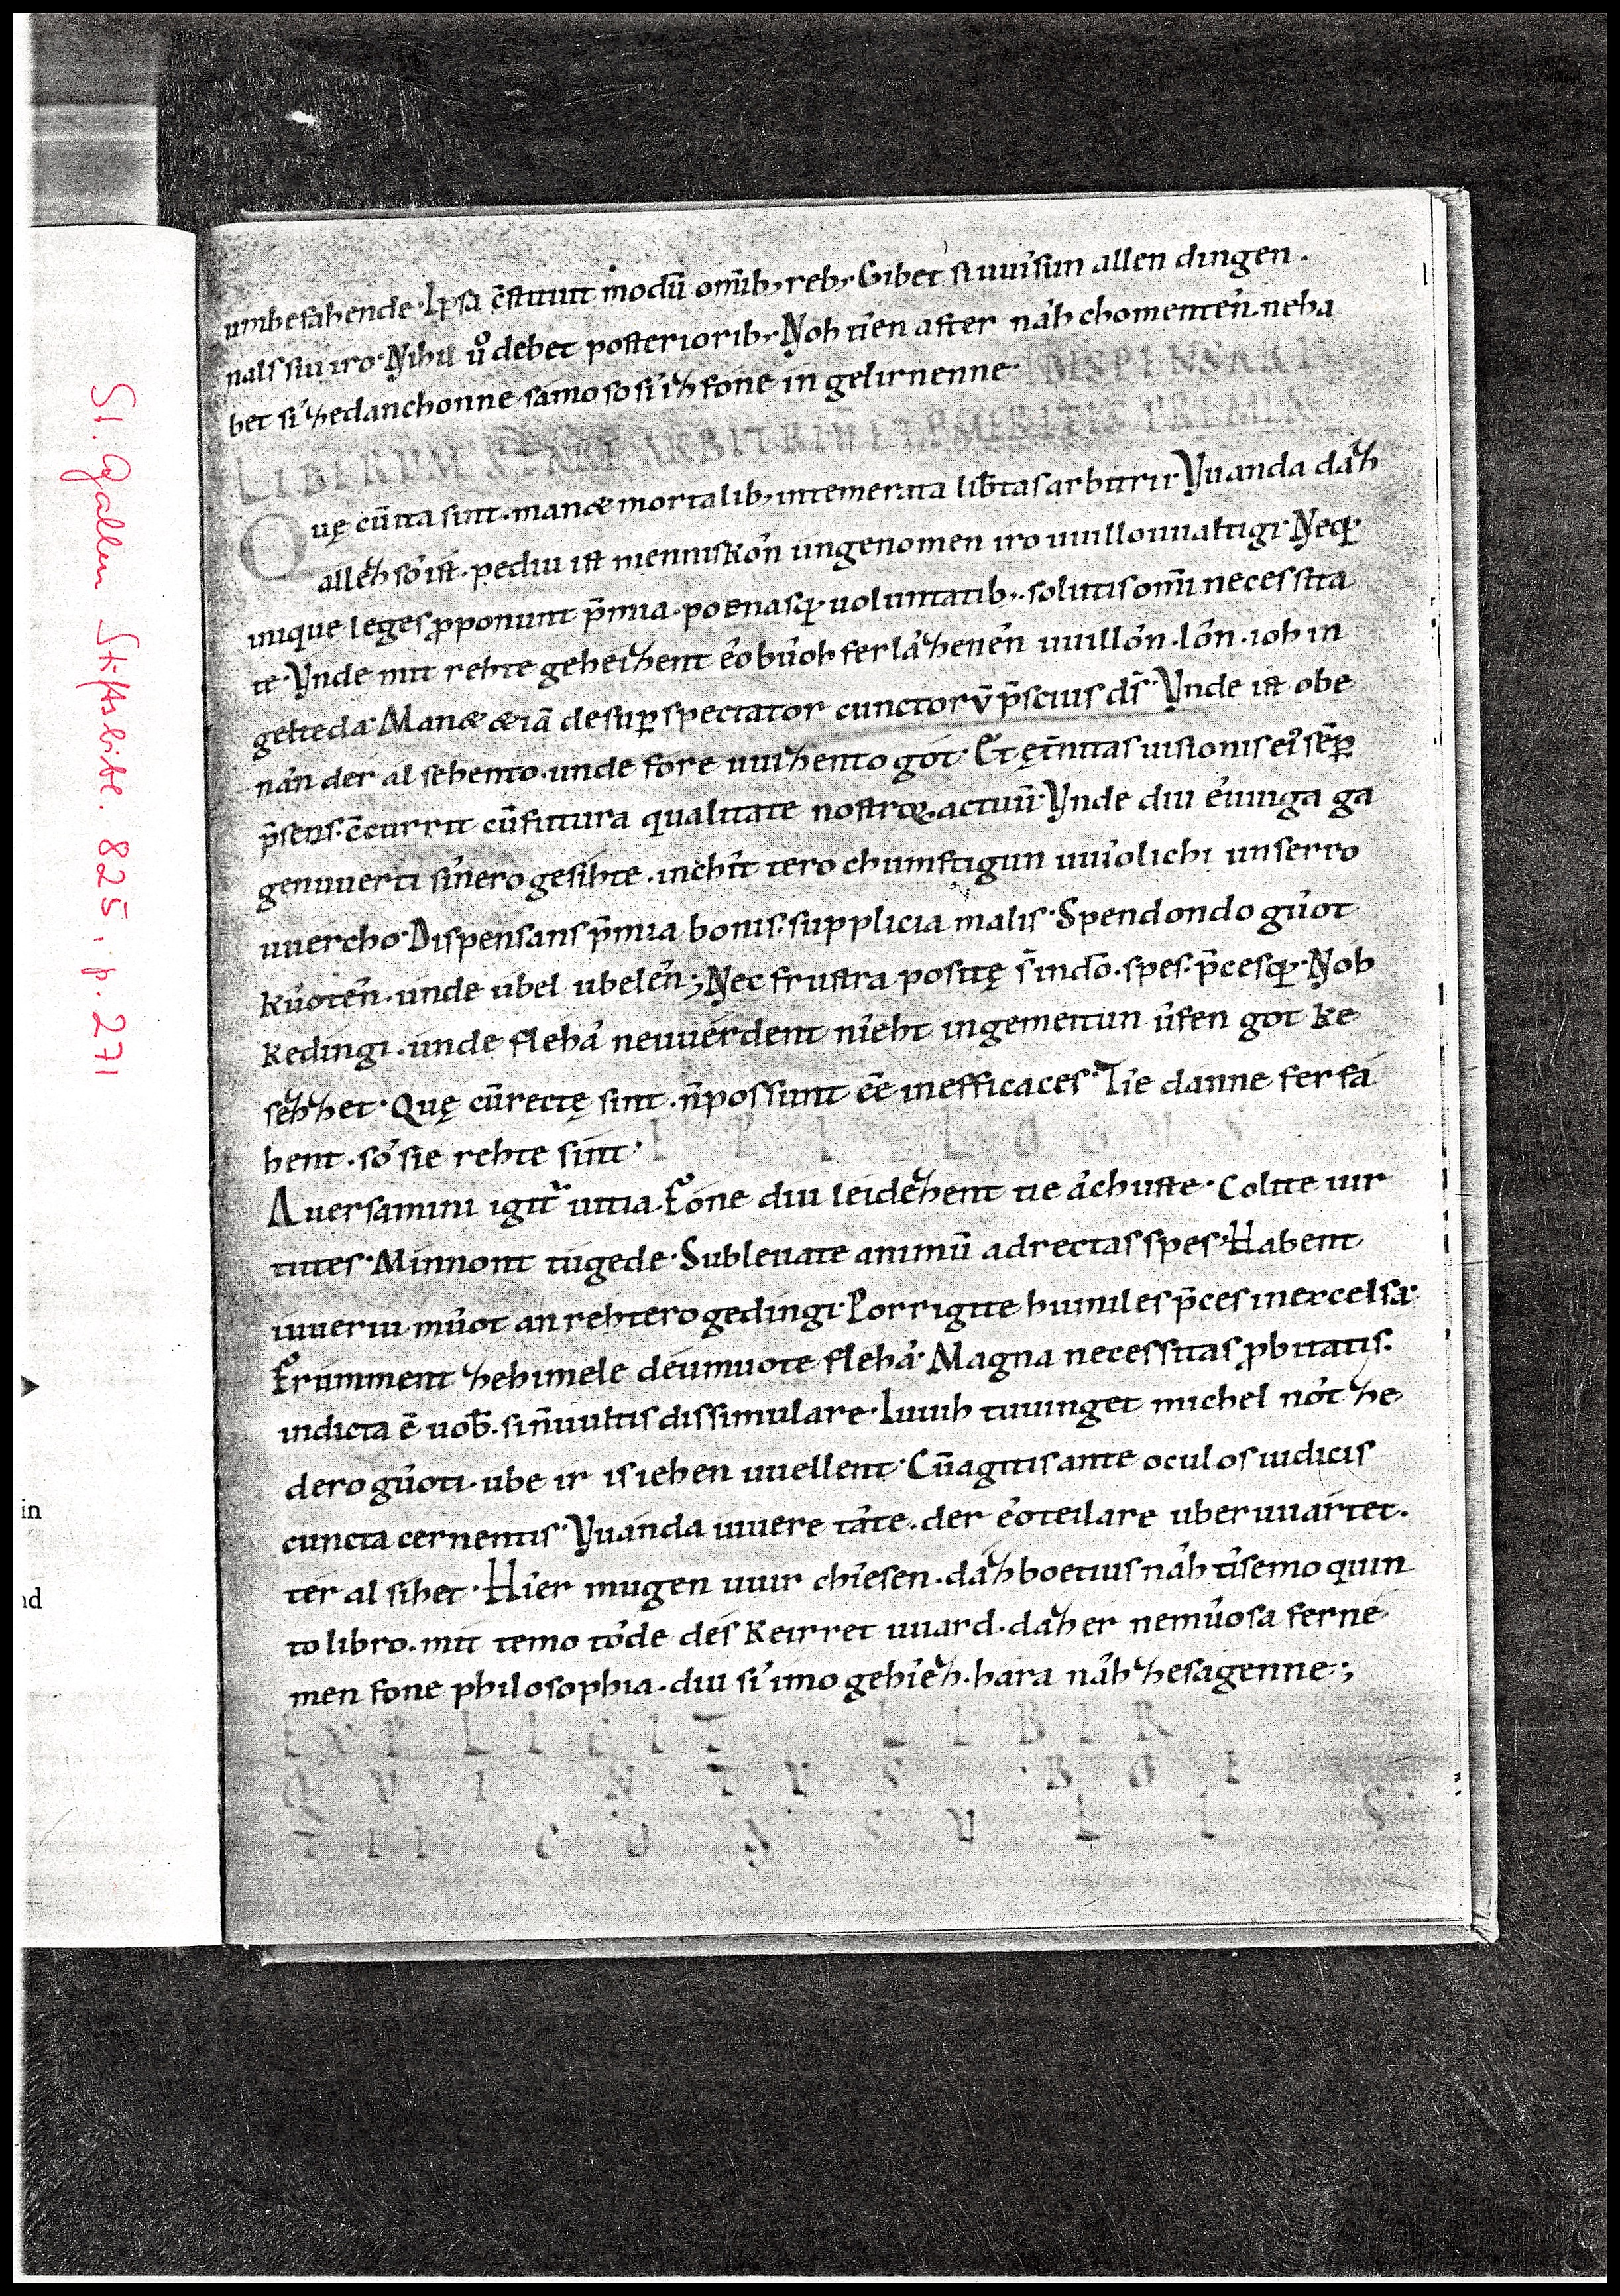 St. Gallen Stiftsbibl. 825, p. 271
umbefáhende. Ipsa c̄stituit modū om̄ib, reb, Gibet si uuîsun allen dingen.
nals siu iro. Nihil u° debet posterioribꝫ Noh tîen after náh chomentên. neha
bet sî zedanchonne samoso sî iz fone in gelirnenne. DISPENSARI
LIBERUM STARE ARBITRIŪ ET P MERITIS PREMIA
Quę cū ita sint. manæ mortalib, intemerata lib̄tas arbitrii. Vuanda dáz
állez sô ist. pediu ist menniskôn ungenomen iro uuillouualtigi. Neqꝫ
inique leges ꝓponunt p̄mia. poenasqꝫ uoluntatib,. solutis om̄i necessita
te. Vnde mit rehte geheizent êo bûoh ferlâzenên uuillôn. lôn. ioh in
gelteda. Manæ æiā desuꝑ spectator cunctorū p̄scius d̄s. Vnde ist obe
nân der al sehento. unde fore uuizento got. Et ęt̄nitas uisionis ei' sēꝑ
p̄sens. c̄currit cū futura qualitate nostroꝝ actuū. Vnde diu êuuiga ga
genuuerti sînero gesihte. inchît tero chumftigun uuîolichi unserro
uuercho. Dispensans p̄mia bonis. supplicia malis. Spendondo gûot
kûotên. unde ubel ubelên; Nec frustra positę s̄ in dō. spes. p̄cesqꝫ. Noh
kedingi. unde flehâ neuuerdent nîeht ingemeitun ûfen got ke
sezzet. Quę cū rectę sint. n̄ possunt ēē inefficaces. Tîe danne ferfâ
hent. sô sie rehte sint. E P I L O G U S
Auersamini igit̄ uitia. Fóne diu leidezent tie âchuste. Colite uir
tutes. Minnont túgede. Subleuate animū ad rectas spes. Habent
iuueriu mûot an rehtero gedingi. Porrigite humiles p̄ces in excelsa.
Frúmment zehimele deumuote flehâ. Magna necessitas ꝓbitatis.
indicta ē uob̄. si n̄ uultis dissimulare. Iuuih tuuinget michel nôt ze
dero gûoti. ube ir is iehen uuellent. Cū agitis ante oculos iudicis
cuncta cernentis. Vuanda iuuere tâte. der êoteilare uberuuartet.
ter al sihet. Hîer mugen uuir chîesen. dáz boetius náh tîsemo quin
to libro. mit temo tôde des keirret uuard. dáz er nemûosa ferne
men fone philosophia. diu sî imo gehîez. hara náh zesagenne;
EXPLICIT LIBER
QUINTVS BOE
TII CONSULIS
in
nd